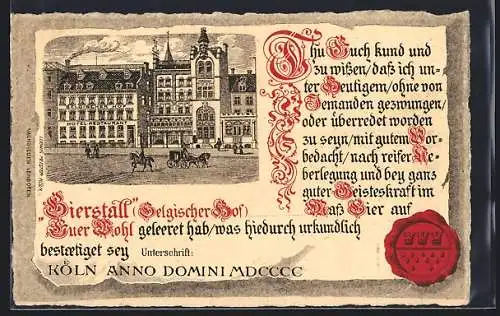 EL-RESTAURANT
Thu Euch kund und
zu wißen/daß ich un-
ter Heutigem/ohne von
Jemanden gezwungen/
oder überredet worden
zu seyn/mit gutem Vor-
bedacht/nach reifer Ue-
berlegung und bey ganz
guter Geisteskraft im
„Bierstall“ (Belgischer Hof) Maß Bier auf
Euer Wohl geleeret hab/was hiedurch urkundlich
bestætiget sey Unterschrift:
KÖLN ANNO DOMINI MDCCCC